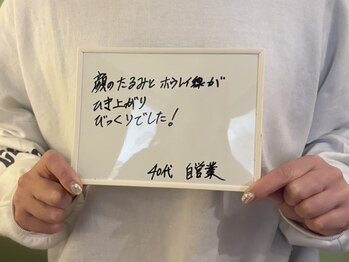 顔のたるみとホウレイ線が
ひき上がり
びっくりでした！
40代 自営業